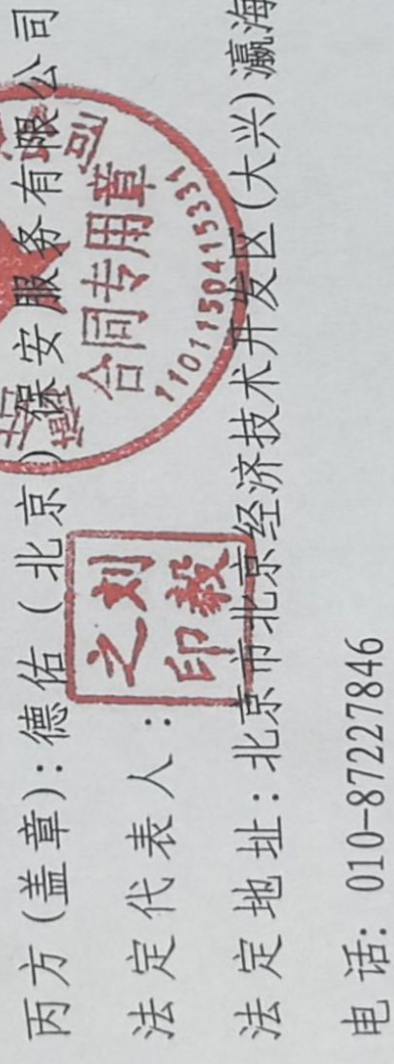 丙方(盖章):德佑(北京)保安服务有限公司
合同专用章
1101150415331
法定代表人:
刘毅
之印
法定地址:北京市北京经济技术开发区(大兴)瀛海
电话: 010-87227846